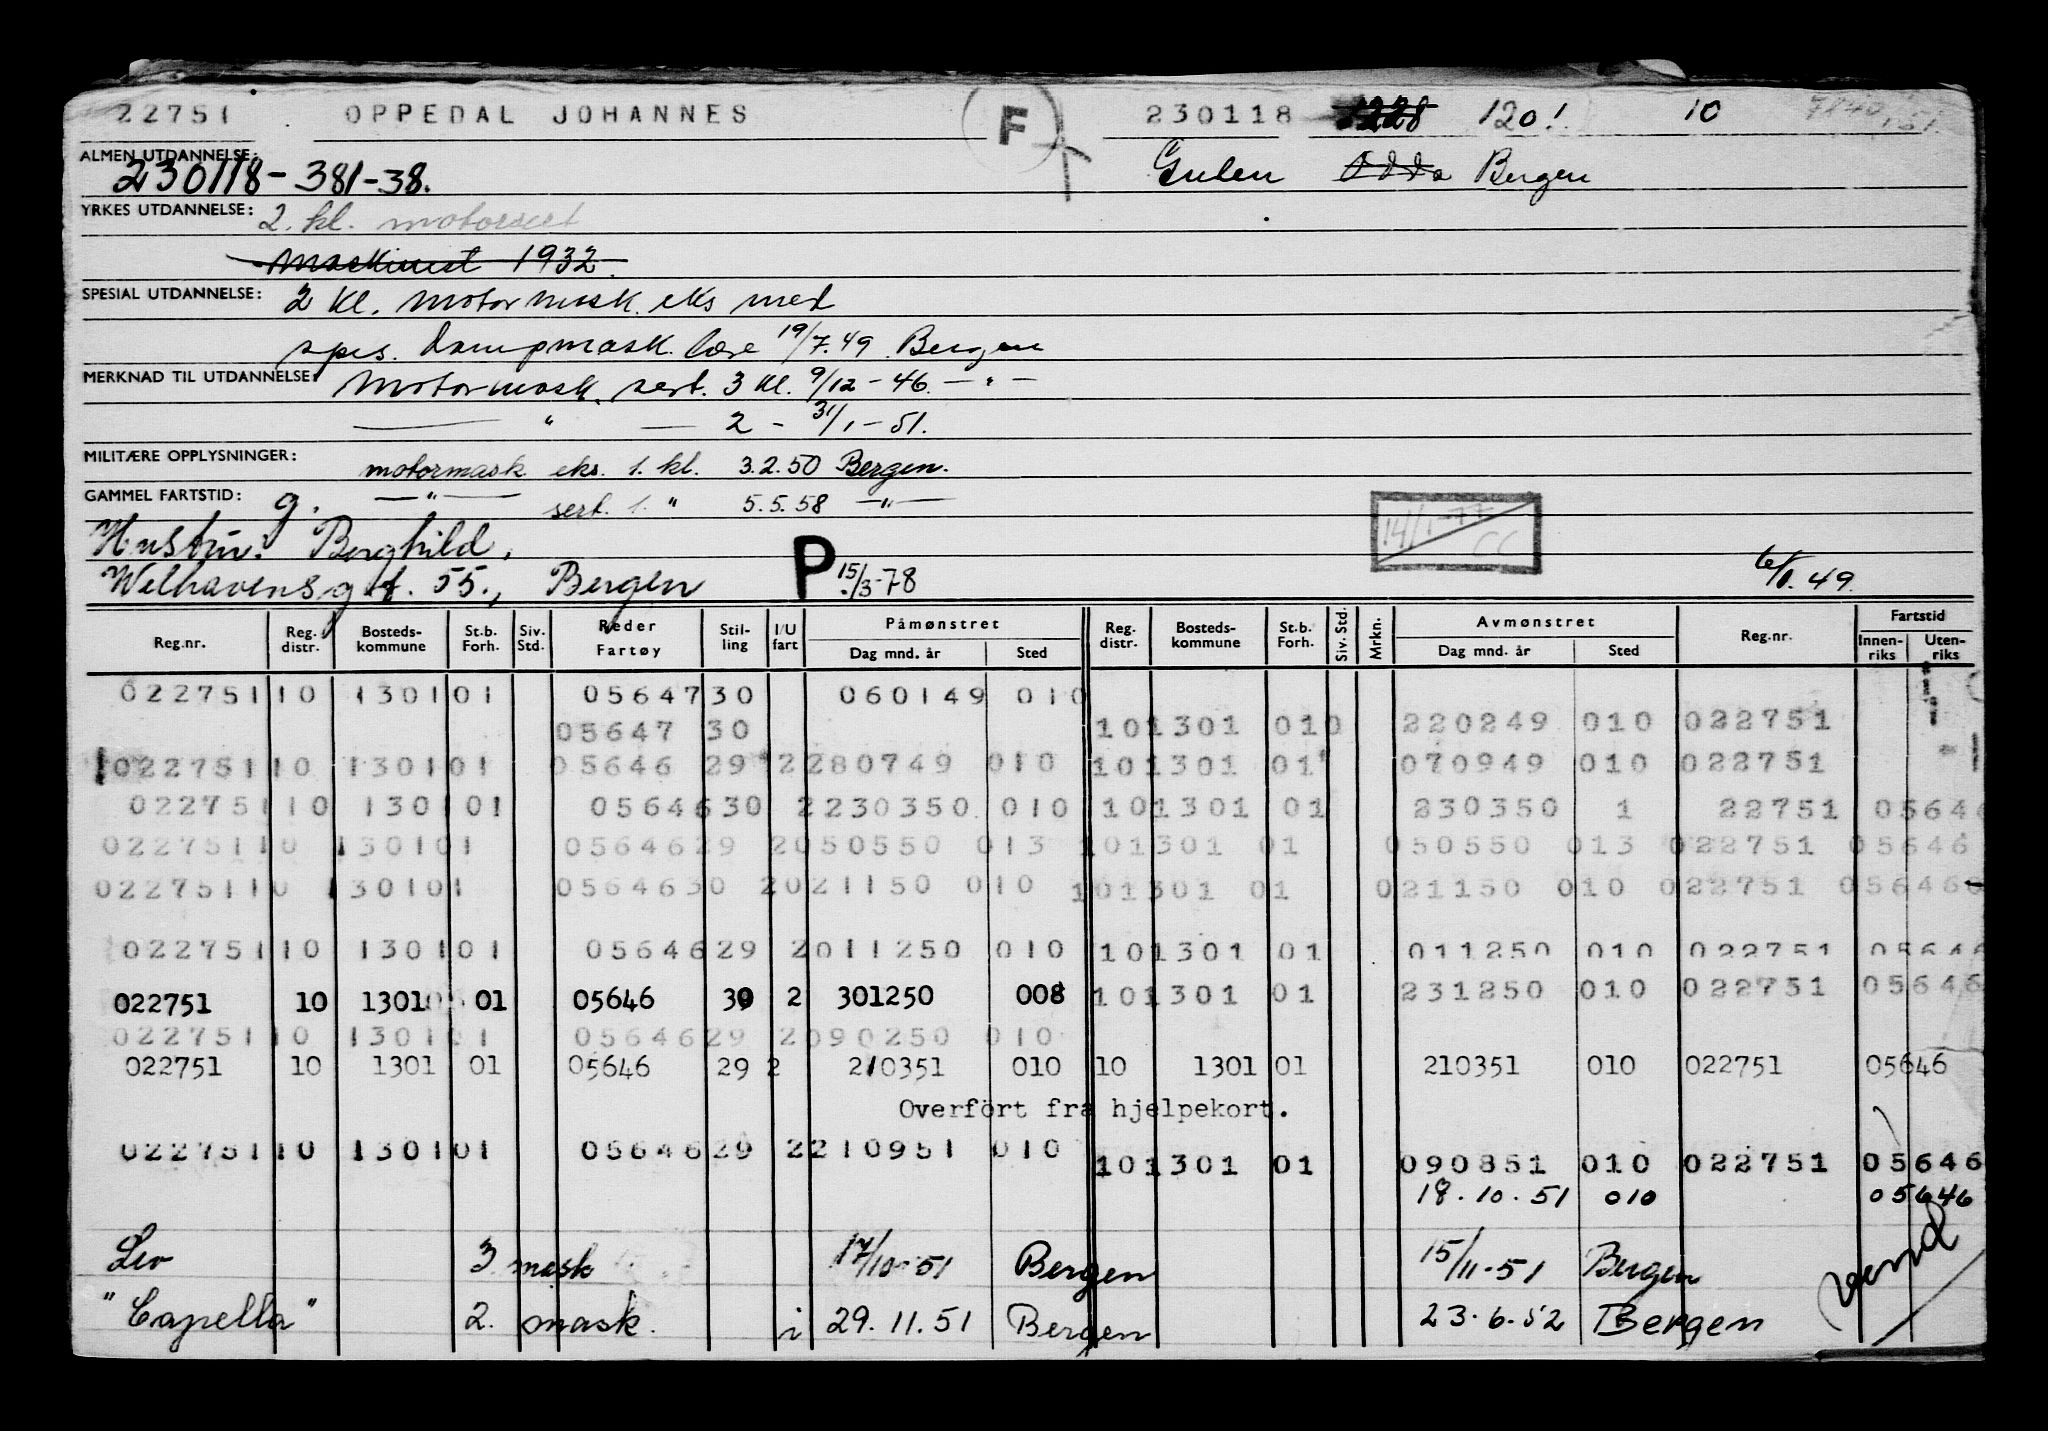 22751 OPPEDAL JOHANNES F 230118 1228 1201. 10
ALMEN UTDANNELSE: 230118-381-38. Gulen Odda Bergen
YRKES UTDANNELSE: 2. kl. motorsert
Maskinist 1932.
SPESIAL UTDANNELSE: 2 kl. motormask. eks med
spes. dampmask. lære 19/7.49 Bergen
MERKNAD TIL UTDANNELSE: Motormask. sert. 3 kl. 9/12-46. — " —
— " — 2 - 31/1-51.
MILITÆRE OPPLYSNINGER: motormask eks. 1. kl. 3.2.50 Bergen.
GAMMEL FARTSTID: g. —"— sert. 1. " 5.5.58 —"—
14/1-77 CC
Hustru: Borghild,
Welhavensgt. 55., Bergen P 15/3-78 6/1.49.
Reg.nr. Reg. distr. Bosteds- kommune St.b. Forh. Siv. Std. Reder Fartøy Stil- ling I/U fart Påmønstret Dag mnd. år Sted Reg. distr. Bosteds- kommune St.b. Forh. Siv. Std. Mrkn. Avmønstret Dag mnd. år Sted Reg.nr. Fartstid Innen- riks Uten- riks
022751 10 1301 01 05647 30 060149 010
05647 30 10 1301 010 220249 010 022751
022751 10 1301 01 05646 29 2 280749 010 10 1301 01 070949 010 022751
022751 10 1301 01 05646 30 2 230350 010 10 1301 01 230350 1 22751 05646
022751 10 1301 01 05646 29 2 050550 013 10 1301 01 050550 013 022751 05646
022751 10 1301 01 05646 30 2 021150 010 10 1301 01 021150 010 022751 05646
022751 10 1301 01 05646 29 2 011250 010 10 1301 01 011250 010 022751 05646
022751 10 1301 01 05646 30 2 301250 008 10 1301 01 231250 010 022751 05646
022751 10 1301 01 05646 29 2 090250 010
022751 10 1301 01 05646 29 2 210351 010 10 1301 01 210351 010 022751 05646
Overført fra hjelpekort.
022751 10 1301 01 05646 29 2 210951 010 10 1301 01 090851 010 022751 05646
18.10.51 010 05646
Leo 3 mask 17/10-51 Bergen 15/11-51 Bergen
"Capella" 2. mask. i 29.11.51 Bergen 23.6.52 Bergen
vend